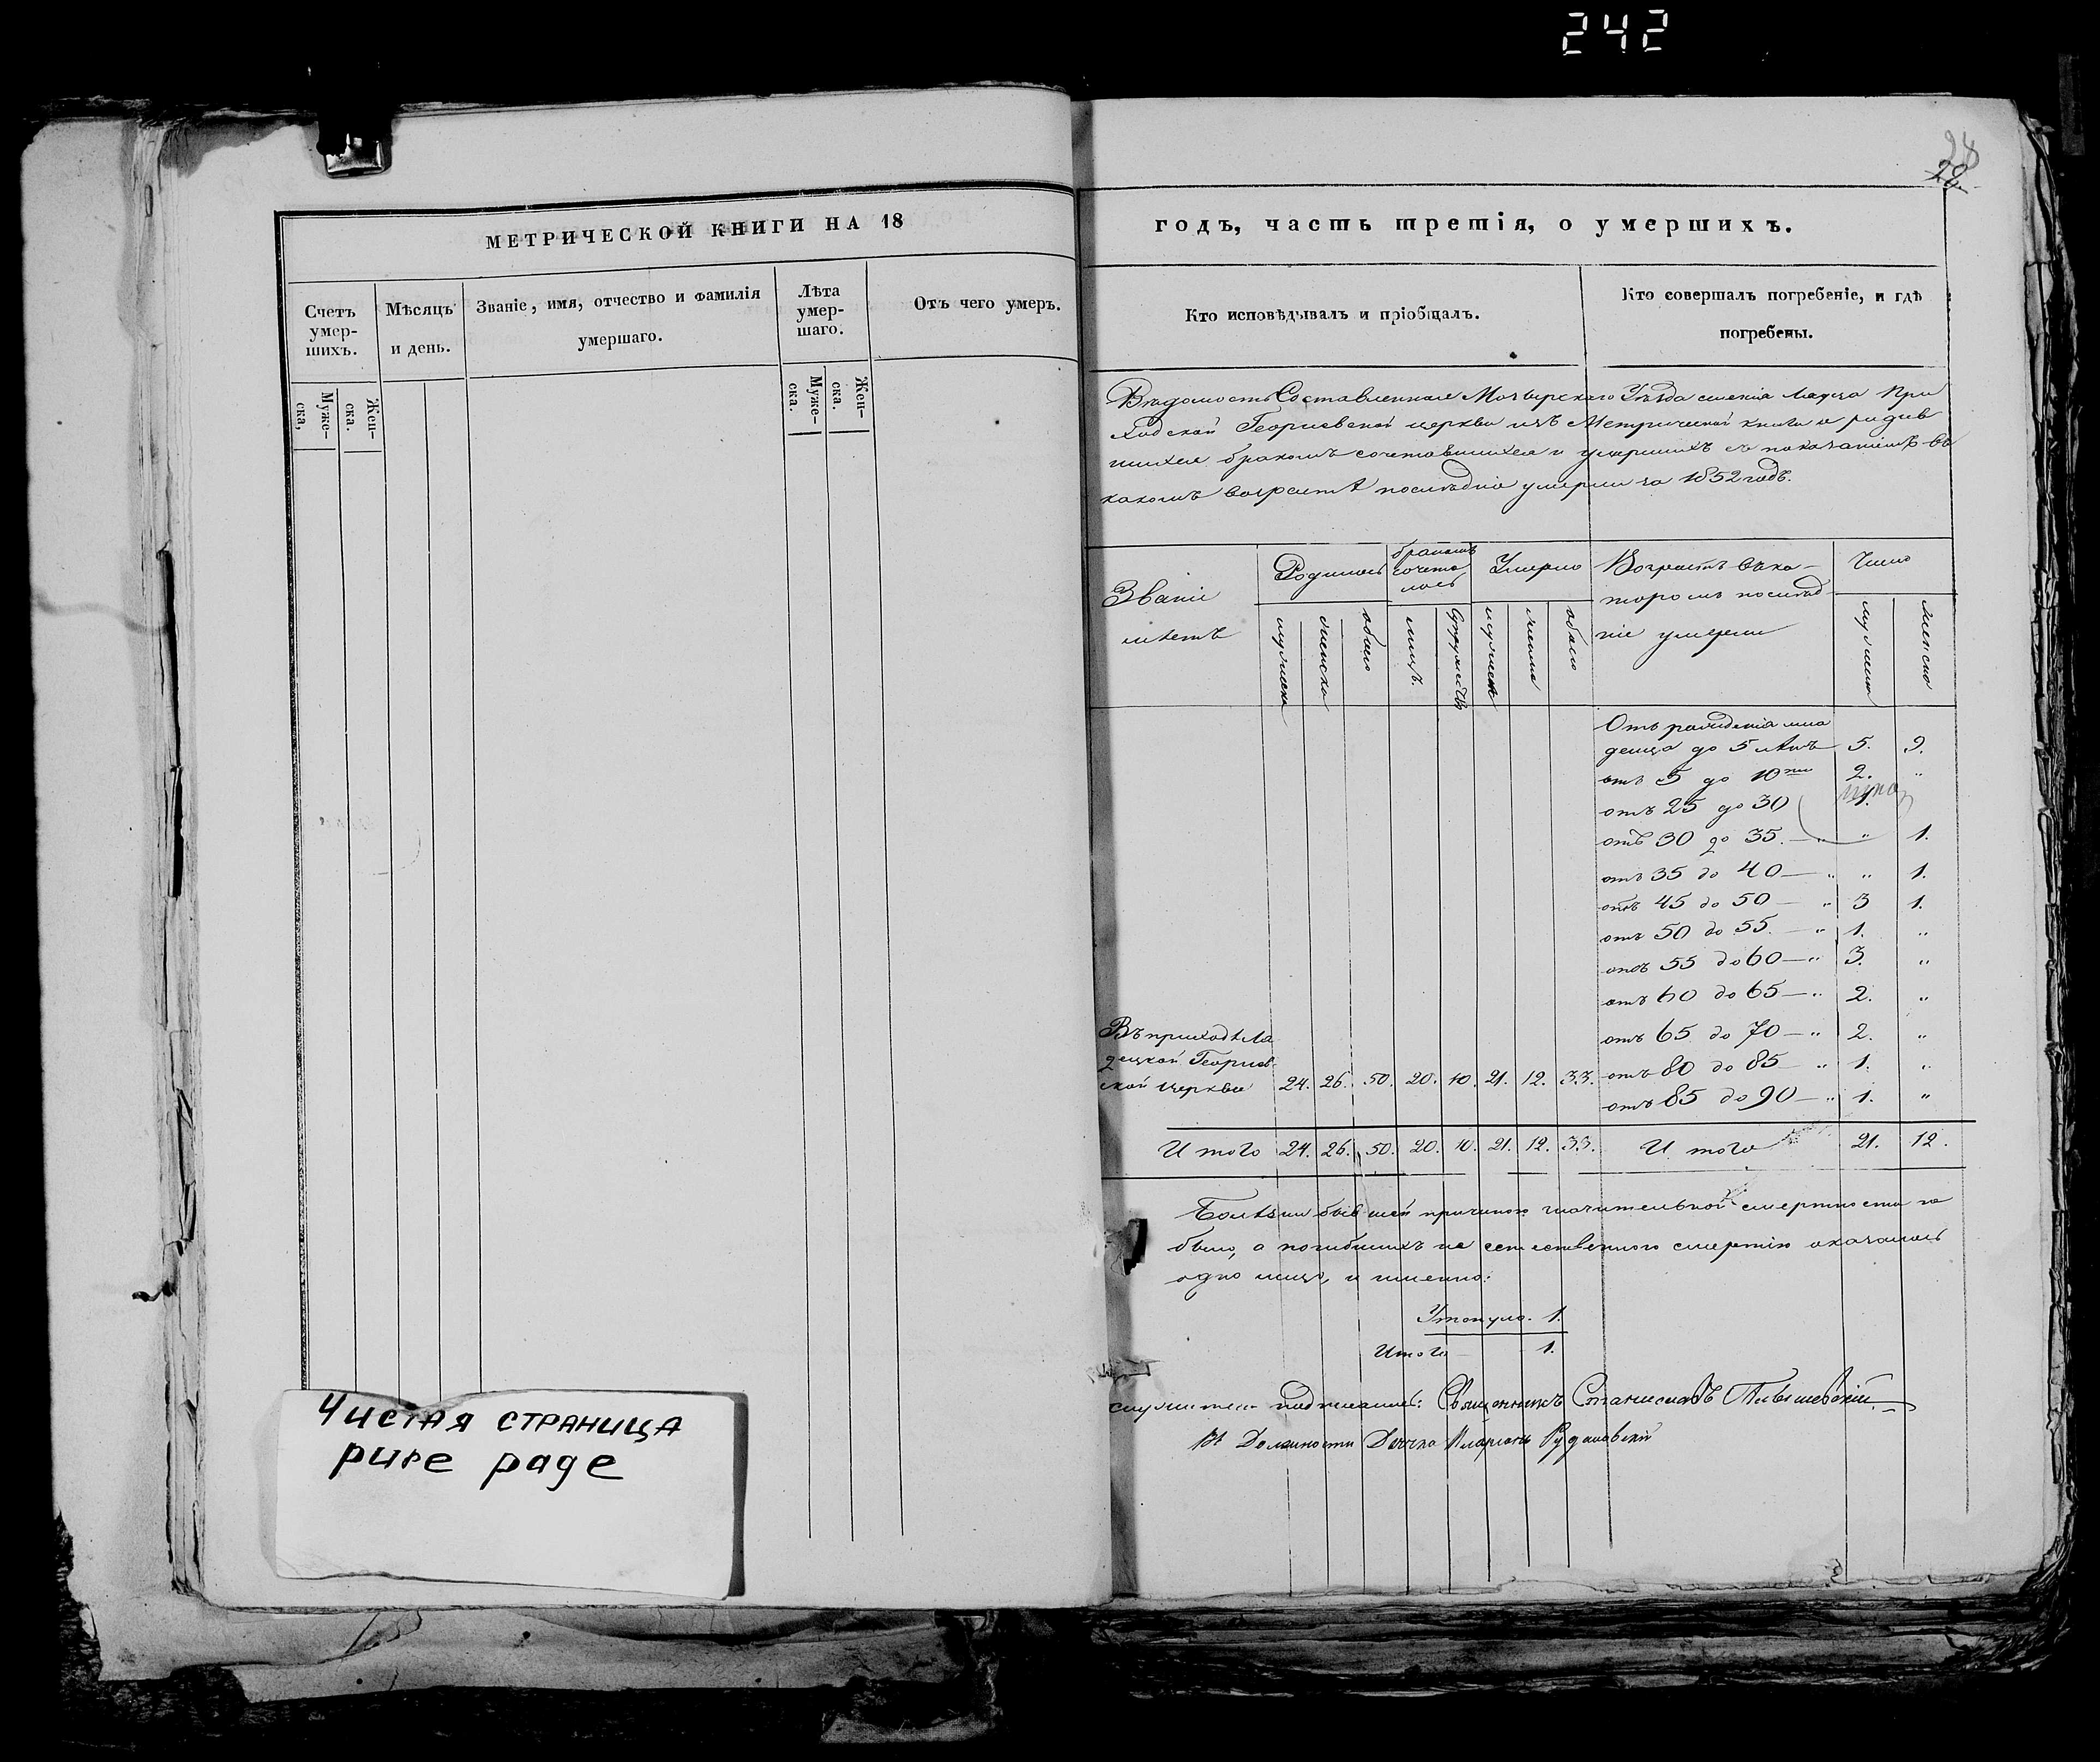 242
28
МЕТРИЧЕСКОЙ КНИГИ НА 18
Счетъ умер-шихъ.
Муже-ска,
Жен-ска.
Мѣсяцъ и день.
Званіе, имя, отчество и фамилія умершаго.
Лѣта умер-шаго.
Муже-ска.
Жен-ска.
Отъ чего умеръ.
Чистая страница
pure page
годъ, часть третія, о умершихъ.
Кто исповѣдывалъ и пріобщалъ.
Кто совершалъ погребеніе, и гдѣ погребены.
Вѣдомость Составленная Мозырскаго Уѣзда имѣнія При
ходской Георгіевской церкви изъ Метрической книги о родив
шихся бракомъ сочетавшихся и умершихъ съ показаніемъ въ
какомъ возрастѣ послѣдніе умерли за 1852 годъ.
Званіе мѣстъ
Родилось
мужеска
женска
обоего
бракомъ сочета лось
лицъ.
Супружествъ
Умерло
мужеск
женска
обоего
Возрастъ въ ко-
торомъ послѣд-
ніе умерли
Число
мужеска
женска
Отъ рожденія мла
денца до 5 лѣтъ 5. 9.
отъ 5 до 10ти 2. "
отъ 25 до 30 1.
отъ 30 до 35. — " " 1.
отъ 35 до 40 — " " 1.
отъ 45 до 50 — " 3 1.
отъ 50 до 55. — " 1. "
отъ 55 до 60 — " 3. "
отъ 60 до 65 — " 2. "
отъ 65 до 70 — " 2. "
отъ 80 до 85 " 1. "
отъ 85 до 90 — " 1. "
Въ приходѣ Ля
децкой Георгіев
ской церкви 24. 26. 50. 20. 10. 21. 12. 33.
И того 24. 26. 50. 20. 10. 21. 12. 33. И того 21. 12.
Болѣзни бывшей причиною значительной смертности не
было, а погибшихъ не естественною смертію оказалось
одно лицо, и именно:
Утонуло. 1.
Итого 1.
подписались: Священникъ Станиславъ
Въ Должности Дьячка Иларіонъ